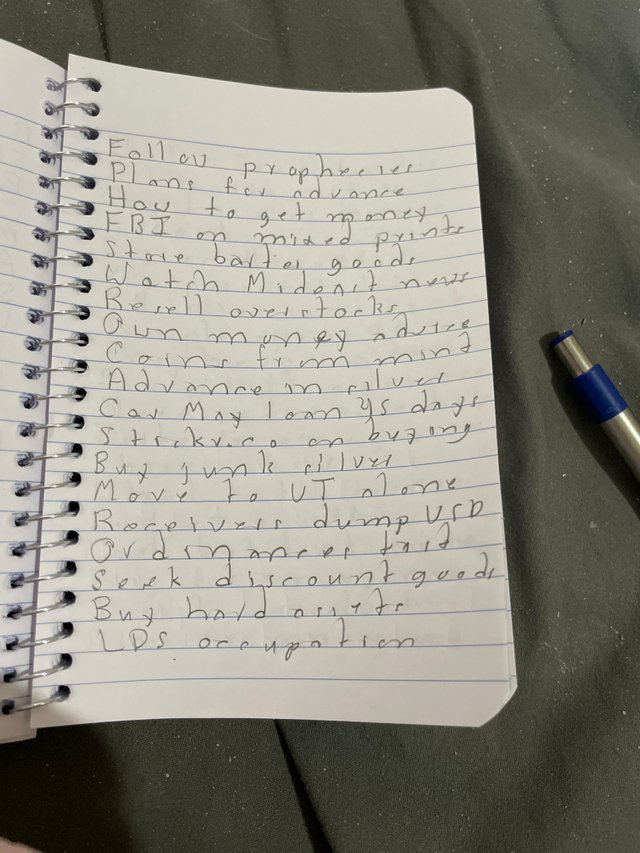 Follow prophecies
Plans for advance
How to get money
FBI on mixed prints
Store barter goods
Watch Mideast news
Resell overstocks
Own money advice
Coins from mint
Advance in silver
Car May loan 45 days
on buying
Buy junk silver
Move to UT alone
Receivers dump USD
Ordinances first
Seek discount goods
Buy hard assets
LDS occupation